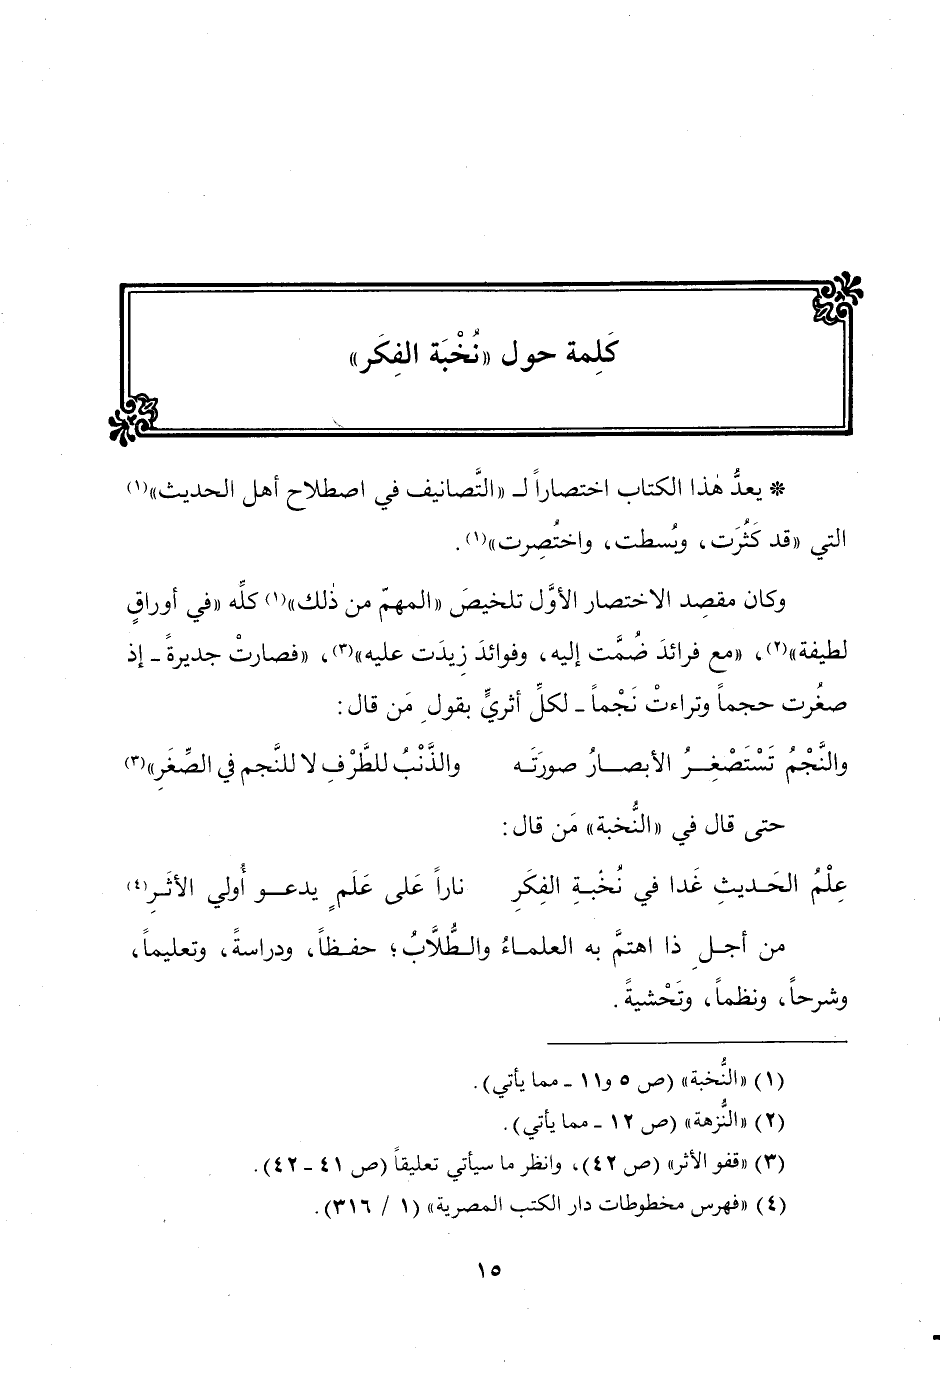 كَلِمة حول «نُخْبَة الفِكَر»
* يعدُّ هٰذا الكتاب اختصاراً لـ «التَّصانيف في اصطلاح أهل الحديث»(١)
التي «قد كَثُرَت، وبُسطت، واختُصِرت»(١).
وكان مقصِد الاختصار الأوَّل تلخيصَ «المهمّ من ذٰلك»(١) كلِّه «في أوراقٍ
لطيفة»(٢)، «مع فرائدَ ضُمَّت إليه، وفوائدَ زِيدَت عليه»(٣)، «فصارتْ جديرةً ـ إذ
صغُرت حجماً وتراءتْ نَجْماً ـ لكلِّ أثريٍّ بقولِ مَن قال:
والنَّجْمُ تَسْتَصْغِـرُ الأبصـارُ صورَتَـه والذَّنْبُ للطَّرْفِ لا للنَّجم في الصِّغَرِ»(٣)
حتى قال في «النُّخبة» مَن قال:
عِلْمُ الحَـديثِ غَدا في نُخْبـةِ الفِكَرِ ناراً عَلى عَلَمٍ يدعـو أُولي الأثَـرِ(٤)
من أجـلِ ذا اهتمَّ به العلماءُ والـطُّلَّابُ؛ حفـظاً، ودراسةً، وتعليماً،
وشرحاً، ونظماً، وتَحْشيةً.
(١) «النُّخبة» (ص ٥ و١١ ـ مما يأتي).
(٢) «النُّزهة» (ص ١٢ ـ مما يأتي).
(٣) «قفو الأثر» (ص ٤٢)، وانظر ما سيأتي تعليقاً (ص ٤١ ـ ٤٢).
(٤) «فهرس مخطوطات دار الكتب المصرية» (١ / ٣١٦).
١٥